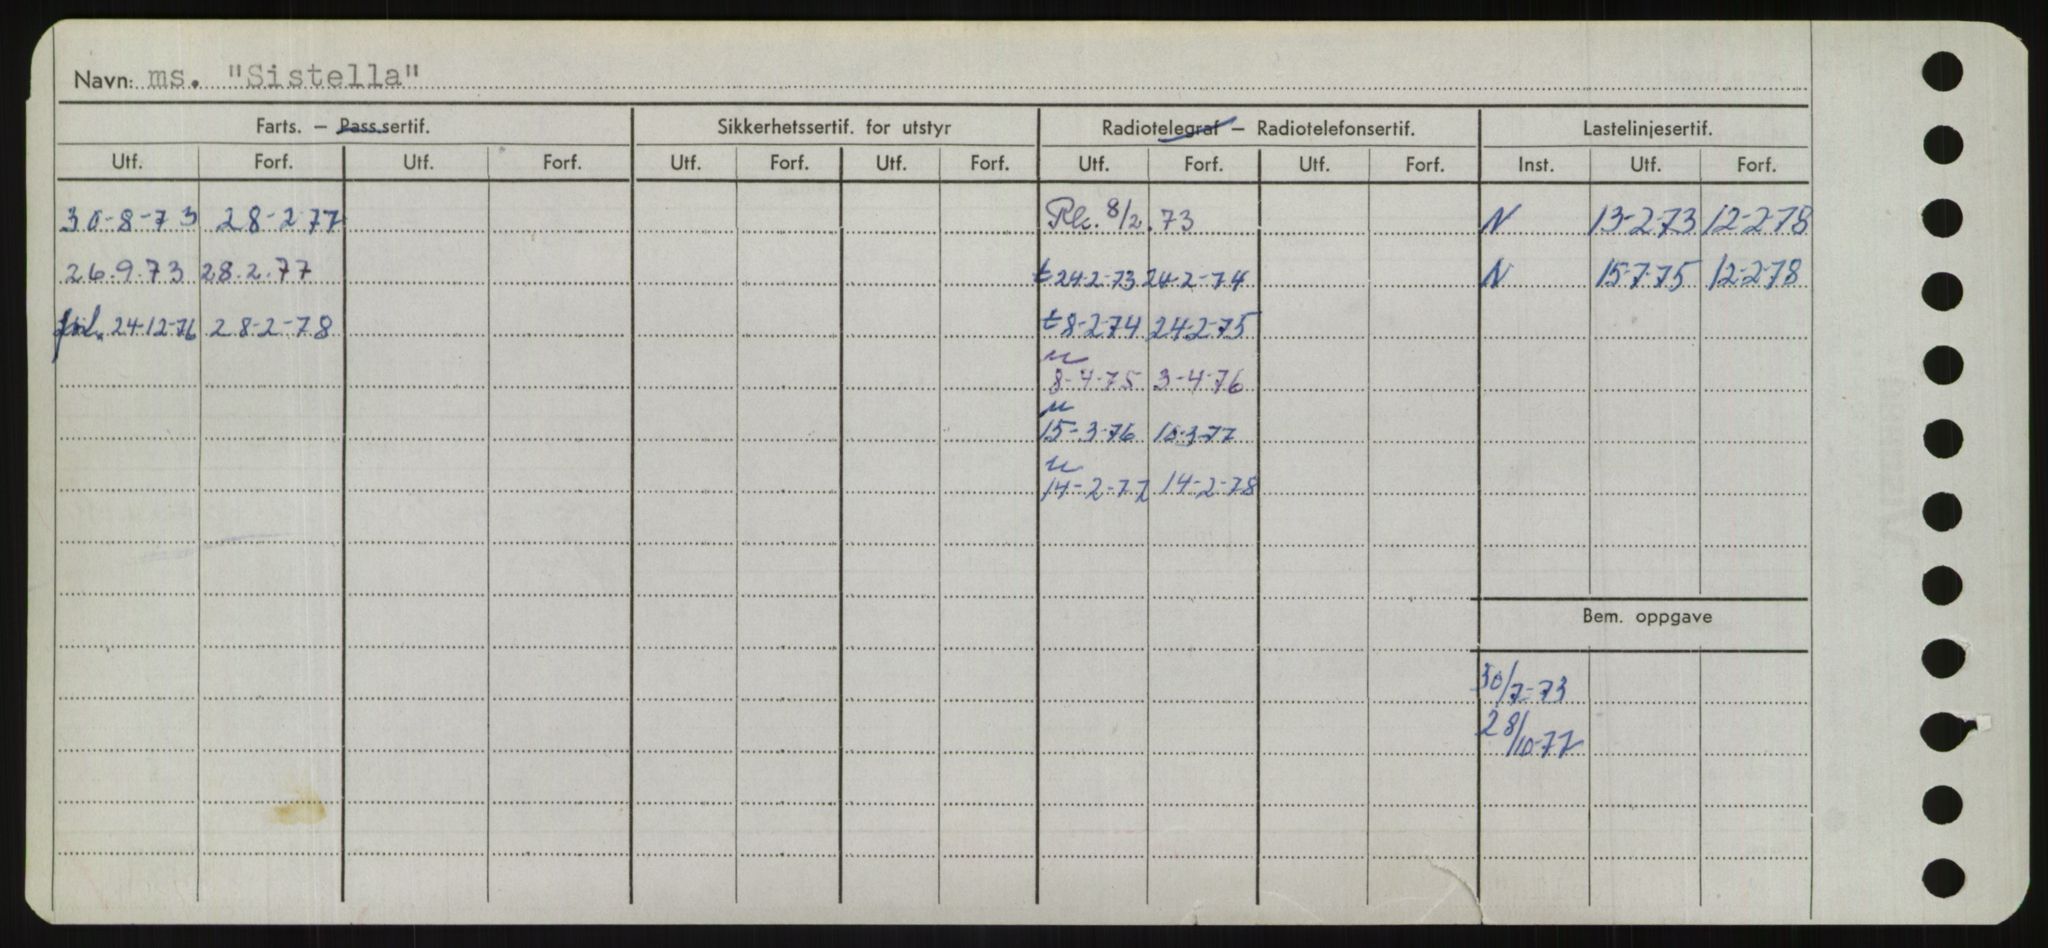 Navn: ms. "Sistella"
Farts. – Pass.sertif. Sikkerhetssertif. for utstyr Radiotelegraf – Radiotelefonsertif. Lastelinjesertif.
Utf. Forf. Utf. Forf. Utf. Forf. Utf. Forf. Utf. Forf. Utf. Forf. Inst. Utf. Forf.
30-8-73 28-2-77 8/2.73 N 13-2-73 12-2-78
26.9.73 28.2.77 t 24-2-73 24-2-74 N 15-7-75 12-2-78
24-12-76 28-2-78 t 8-2-74 24-2-75
u
8-4-75 3-4-76
u
15-3-76 15-3-77
u
14-2-77 14-2-78
Bem. oppgave
30/7-73
28/10-77